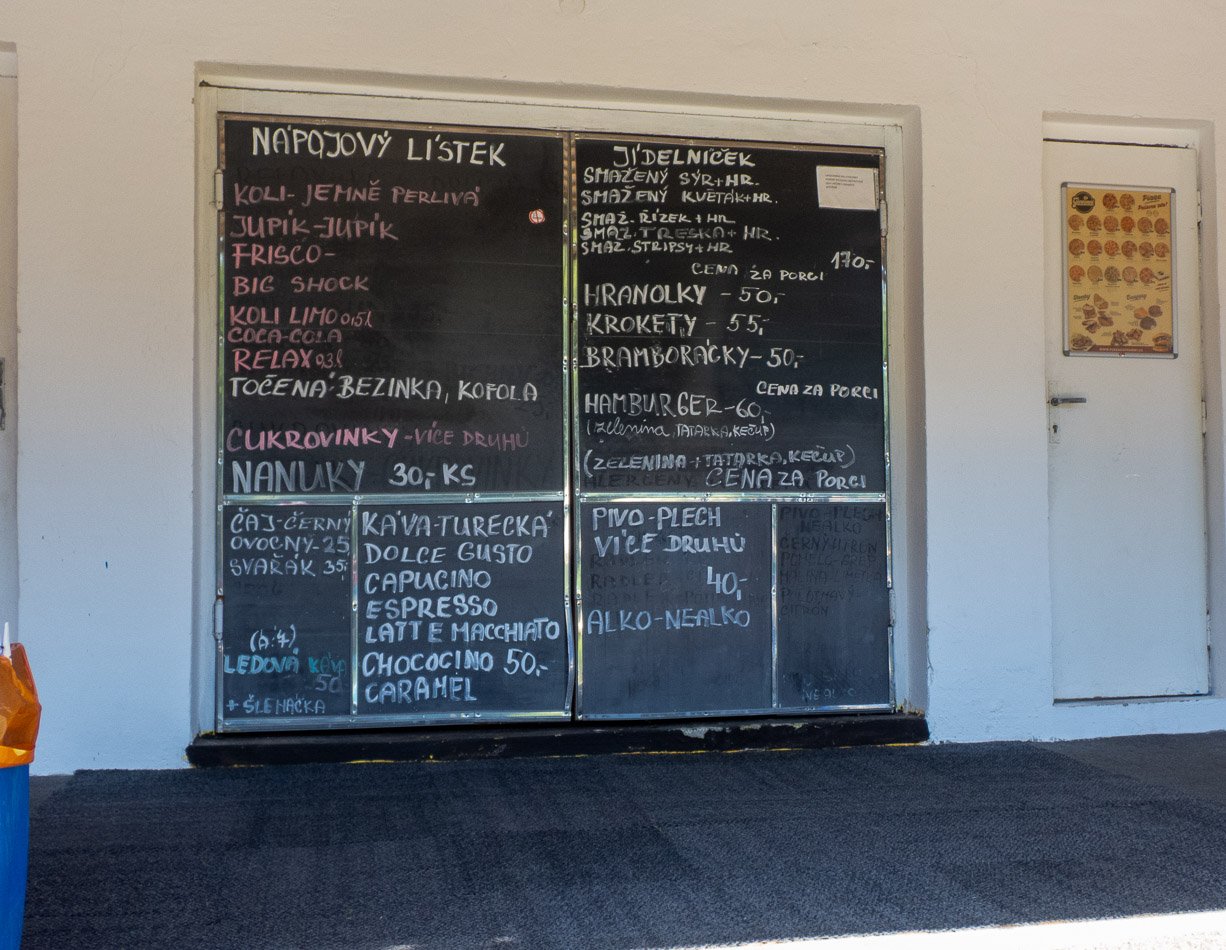 NÁPOJOVÝ LÍSTEK
KOLI- JEMNĚ PERLIVÁ
JUPÍK-JUPÍK
FRISCO-
BIG SHOCK
KOLI LIMO 0,5l
COCA-COLA
RELAX 0,3l
TOČENÁ BEZINKA, KOFOLA
CUKROVINKY -VÍCE DRUHŮ
NANUKY 30,- KS
ČAJ-ČERNÝ
OVOCNÝ-25
SVAŘÁK 35,-
LEDOVÁ KÁVA
50
+ ŠLEHAČKA
KÁVA-TURECKÁ
DOLCE GUSTO
CAPUCINO
ESPRESSO
LATTE MACCHIATO
CHOCOCINO 50,-
CARAMEL
JÍDELNÍČEK
SMAŽENÝ SÝR+HR.
SMAŽENÝ KVĚTÁK+HR.
SMAŽ. ŘÍZEK + HR
SMAŽ. TRESKA + HR.
SMAŽ. STRIPSY+HR
170,-
CENA ZA PORCI
HRANOLKY - 50,-
KROKETY - 55,-
BRAMBORÁČKY- 50,-
CENA ZA PORCI
HAMBURGER-60,-
(zelenina, TATARKA, KEČUP)
(ZELENINA+TATARKA, KEČUP)
CENA ZA PORCI
PIVO-PLECH
VÍCE DRUHŮ
40,-
ALKO-NEALKO
PIVO-PLECH
NEALKO